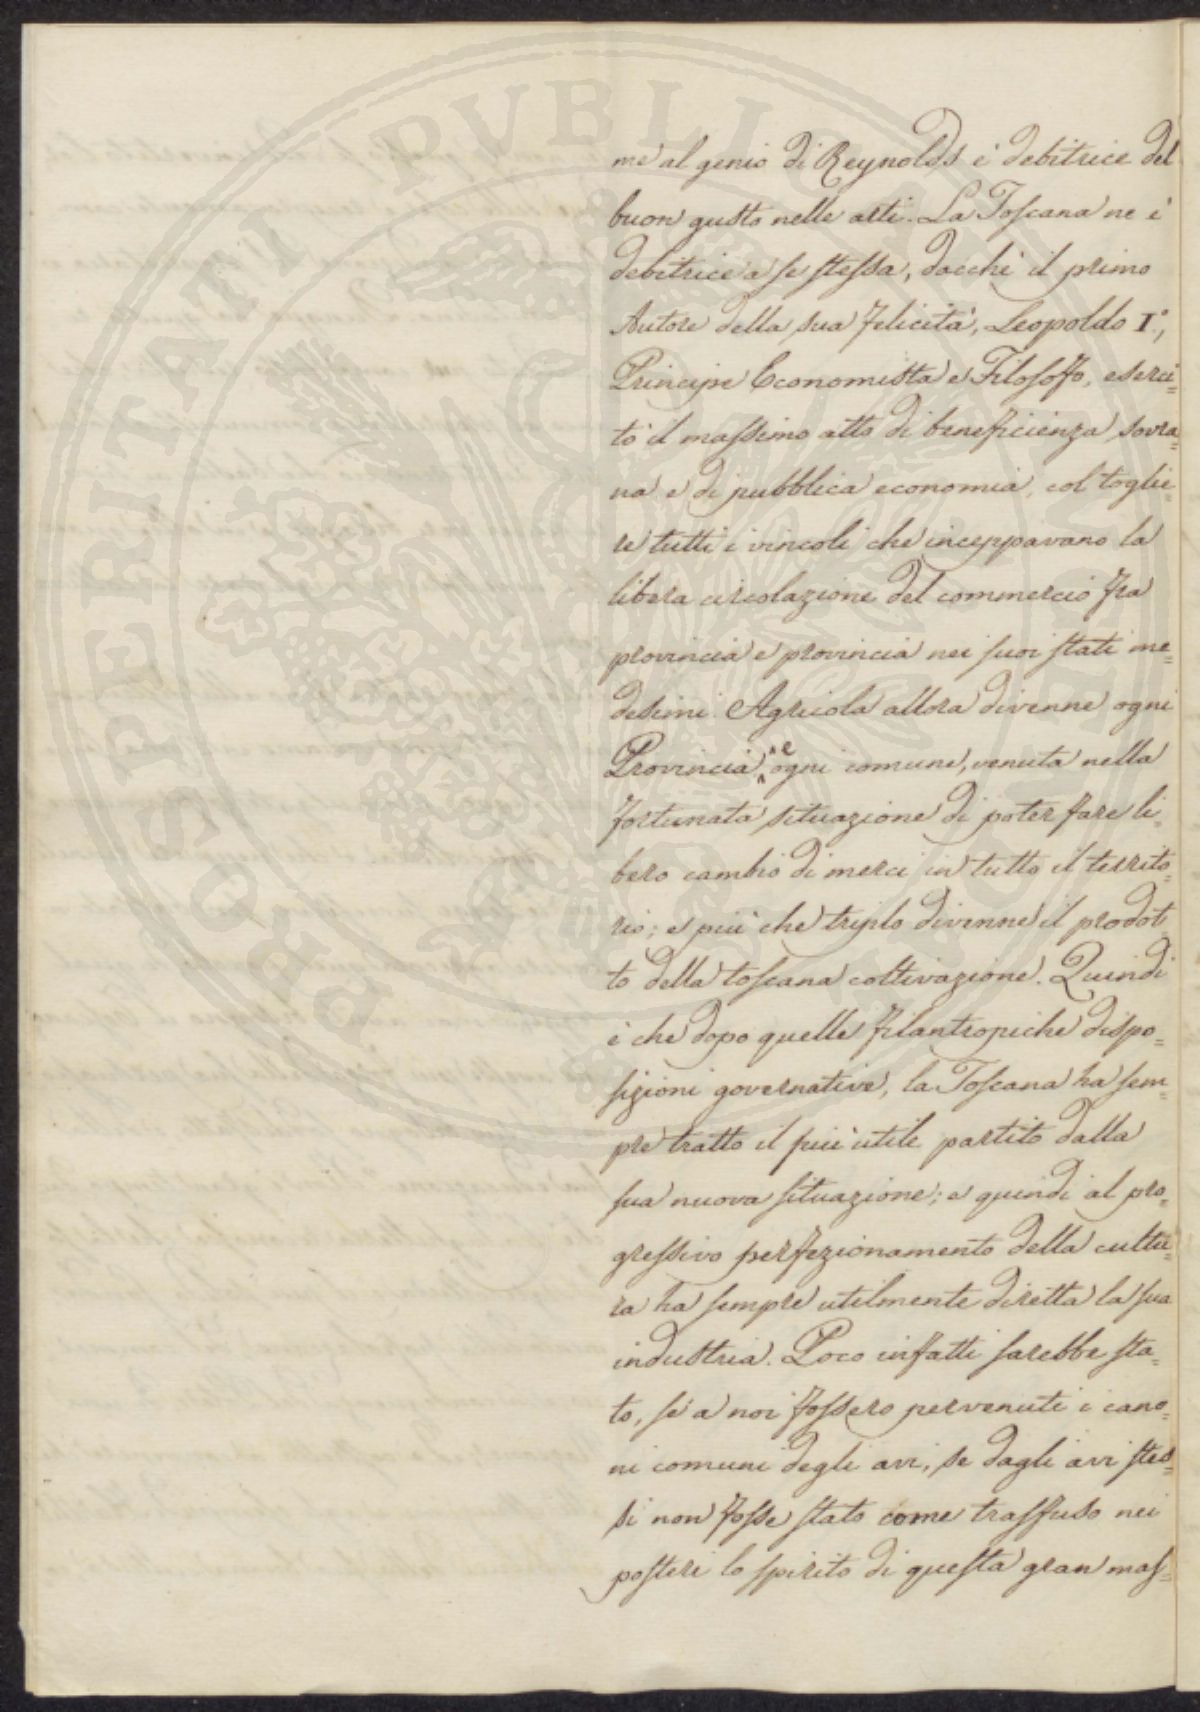 me al genio di Reynolds è debitrice del
buon gusto nelle arti. La Toscana ne è
debitrice a se stessa, dacchè il primo
Autore della sua felicità, Leopoldo I.°,
Principe Economista e Filosofo, eserci=
tò il massimo atto di beneficienza sovra=
na e di pubblica economia, col toglie=
re tutti i vincoli che inceppavano la
libera circolazione del commercio fra
provincia e provincia nei suoi stati me=
desimi. Agricola allora divenne ogni
Provincia, e ogni comune, venuta nella
fortunata situazione di poter fare li=
bero cambio di merci in tutto il territo=
rio; e più che triplo divenne il prodot=
to della toscana coltivazione. Quindi
è che dopo quelle filantropiche dispo=
sizioni governative, la Toscana ha sem=
pre tratto il più utile partito dalla
sua nuova situazione; e quindi al pro=
gressivo perfezionamento della cultu=
ra ha sempre utilmente diretta la sua
industria. Poco infatti sarebbe sta=
to, se a noi fossero pervenuti i cano=
ni comuni degli avi, se dagli avi stes=
si non fosse stato come trasfuso nei
posteri lo spirito di questa gran mas=
PROSPERITATI PUBLICAE